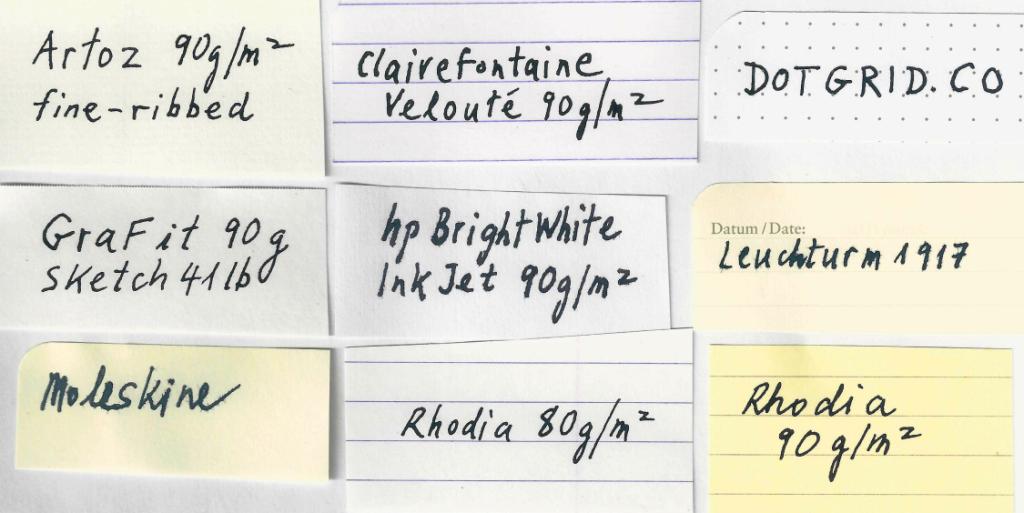 Artoz 90g/m²
fine-ribbed
Clairefontaine
Velouté 90g/m²
DOTGRID.CO
GraFit 90g
Sketch 41lb
hp BrightWhite
InkJet 90g/m²
Datum/Date:
Leuchturm 1917
Moleskine
Rhodia 80g/m²
Rhodia
90g/m²